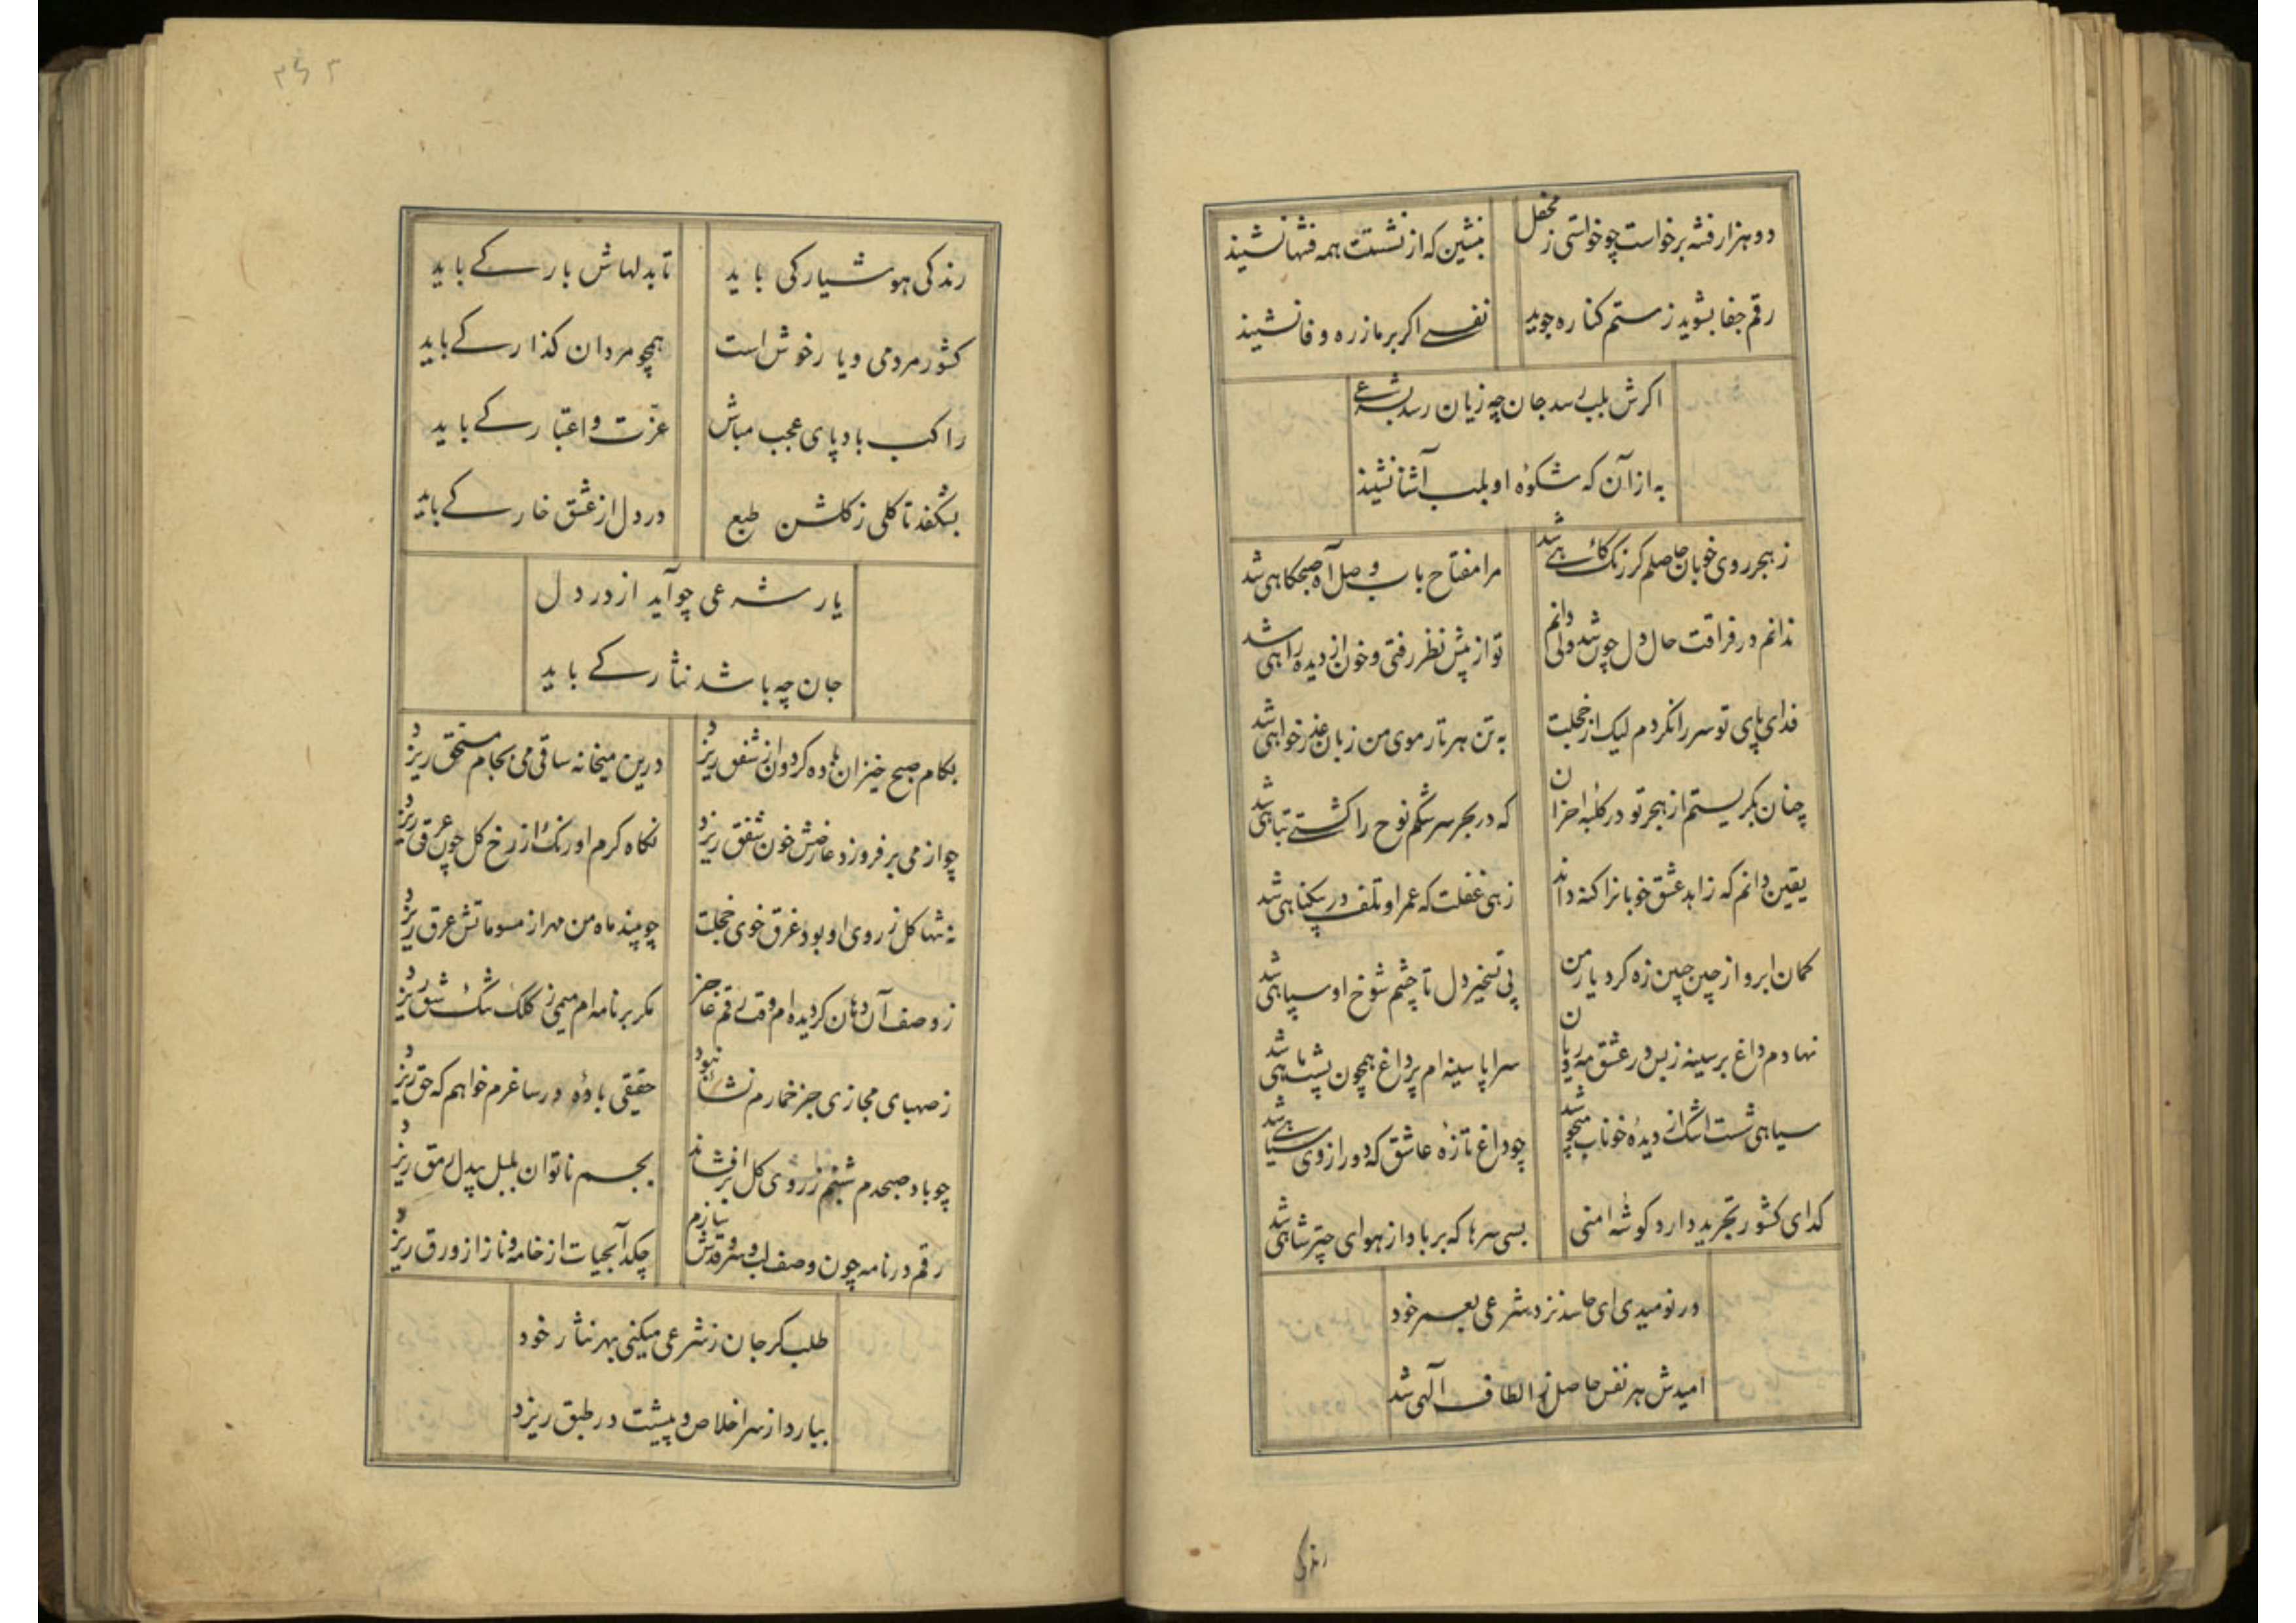 دو هزار فتنه برخاست چو خواستی ز محفل
بنشین که از نشستت همه فتنها نشیند
رقم جفا بشوید ز ستم کناره جوید
نفسے اکر بر ما ز ره وفا نشیند
اکرش بلب رسد جان چه زیان رسد بشرعے
به از آن که شکوه او بلب آشنا نشیند
ز هجر روی خوبان حاصلم کر زنک کاهے شد
مرا مفتاح باب وصل آه صبحکاهی شد
ندانم در فراقت حال دل چو شد ولی دانم
تو از پیش نظر رفتی و خون از دیده راهی شد
فدای پای تو سر را نکردم لیک از خجلت
به تن هر تار موی من زبان عذر خواهی شد
چنان بکریستم از هجر تو در کلبه احزان
که در بحر سرشکم نوح را کشتے تباهی شد
یقین دانم که زاهد عشق خوبانرا کنه داند
زهی غفلت که عمر او تلف در بیکناهی شد
کمان ابرو از چین جبین زه کرد یار من
پی تسخیر دل تا چشم شوخ او سپاهی شد
نهادم داغ بر سینه ز بس در عشق مه رویان
سراپا سینه ام پر داغ همچون پشت ماهی شد
سیاهی شست اشک از دیده خوناب منچو شد
چو داغ تازه عاشق که دور از وی سیاهے شد
کدای کشور تجرید دارد کوشه امنی
بسی سرها که بر باد از هوای چتر شاهی شد
در نومیدی ای حاسد نزد شرعی بعمر خود
امیدش هر نفس حاصل ز الطاف آلهی شد
رندکی
۳۶۳
رندکی هوشیارکی باید
تا بدلهاش بارکے باید
کشور مردمی و یار خوش است
همچو مردان کذارکے باید
راکب باد پای عجب مباش
عزت و اعتبارکے باید
بشکفد تا کلی ز کلشن طبع
در دل از عشق خارکے باید
یار شرعی چو آید از در دل
جان چه باشد نثارکے باید
بکام صبح خیزان باده کردون از شفق ریزد
درین میخانه ساقی می بجام مستحق ریزد
چو از می بر فروزد عارضش خون شفق ریزد
نکاه کرم او رنک از رخ کل چون عرق ریزد
نه تنها کل ز روی او بود غرق خوی خجلت
چو بیند ماه من مهر از مسوماتش عرق ریزد
ز وصف آن دهان کردیده ام وقت رقم عاجز
مکر بر نامه ام میمی ز کلک شک شق ریزد
ز صهبای مجازی جز خمارم نشأئه نبود
حقیقی باده در ساغرم خواهم که حق ریزد
چو باد صبحدم شبنم ز روی کل بر افشاند
بجسم ناتوان بلبل بیدل رمق ریزد
رقم در نامه چون وصف لب و سرو قدش سازم
چکد آبحیات از خامه و ناز از ورق ریزد
طلب کر جان ز شرعی میکنی بهر نثار خود
بیارد از سر اخلاص و پیشت در طبق ریزد